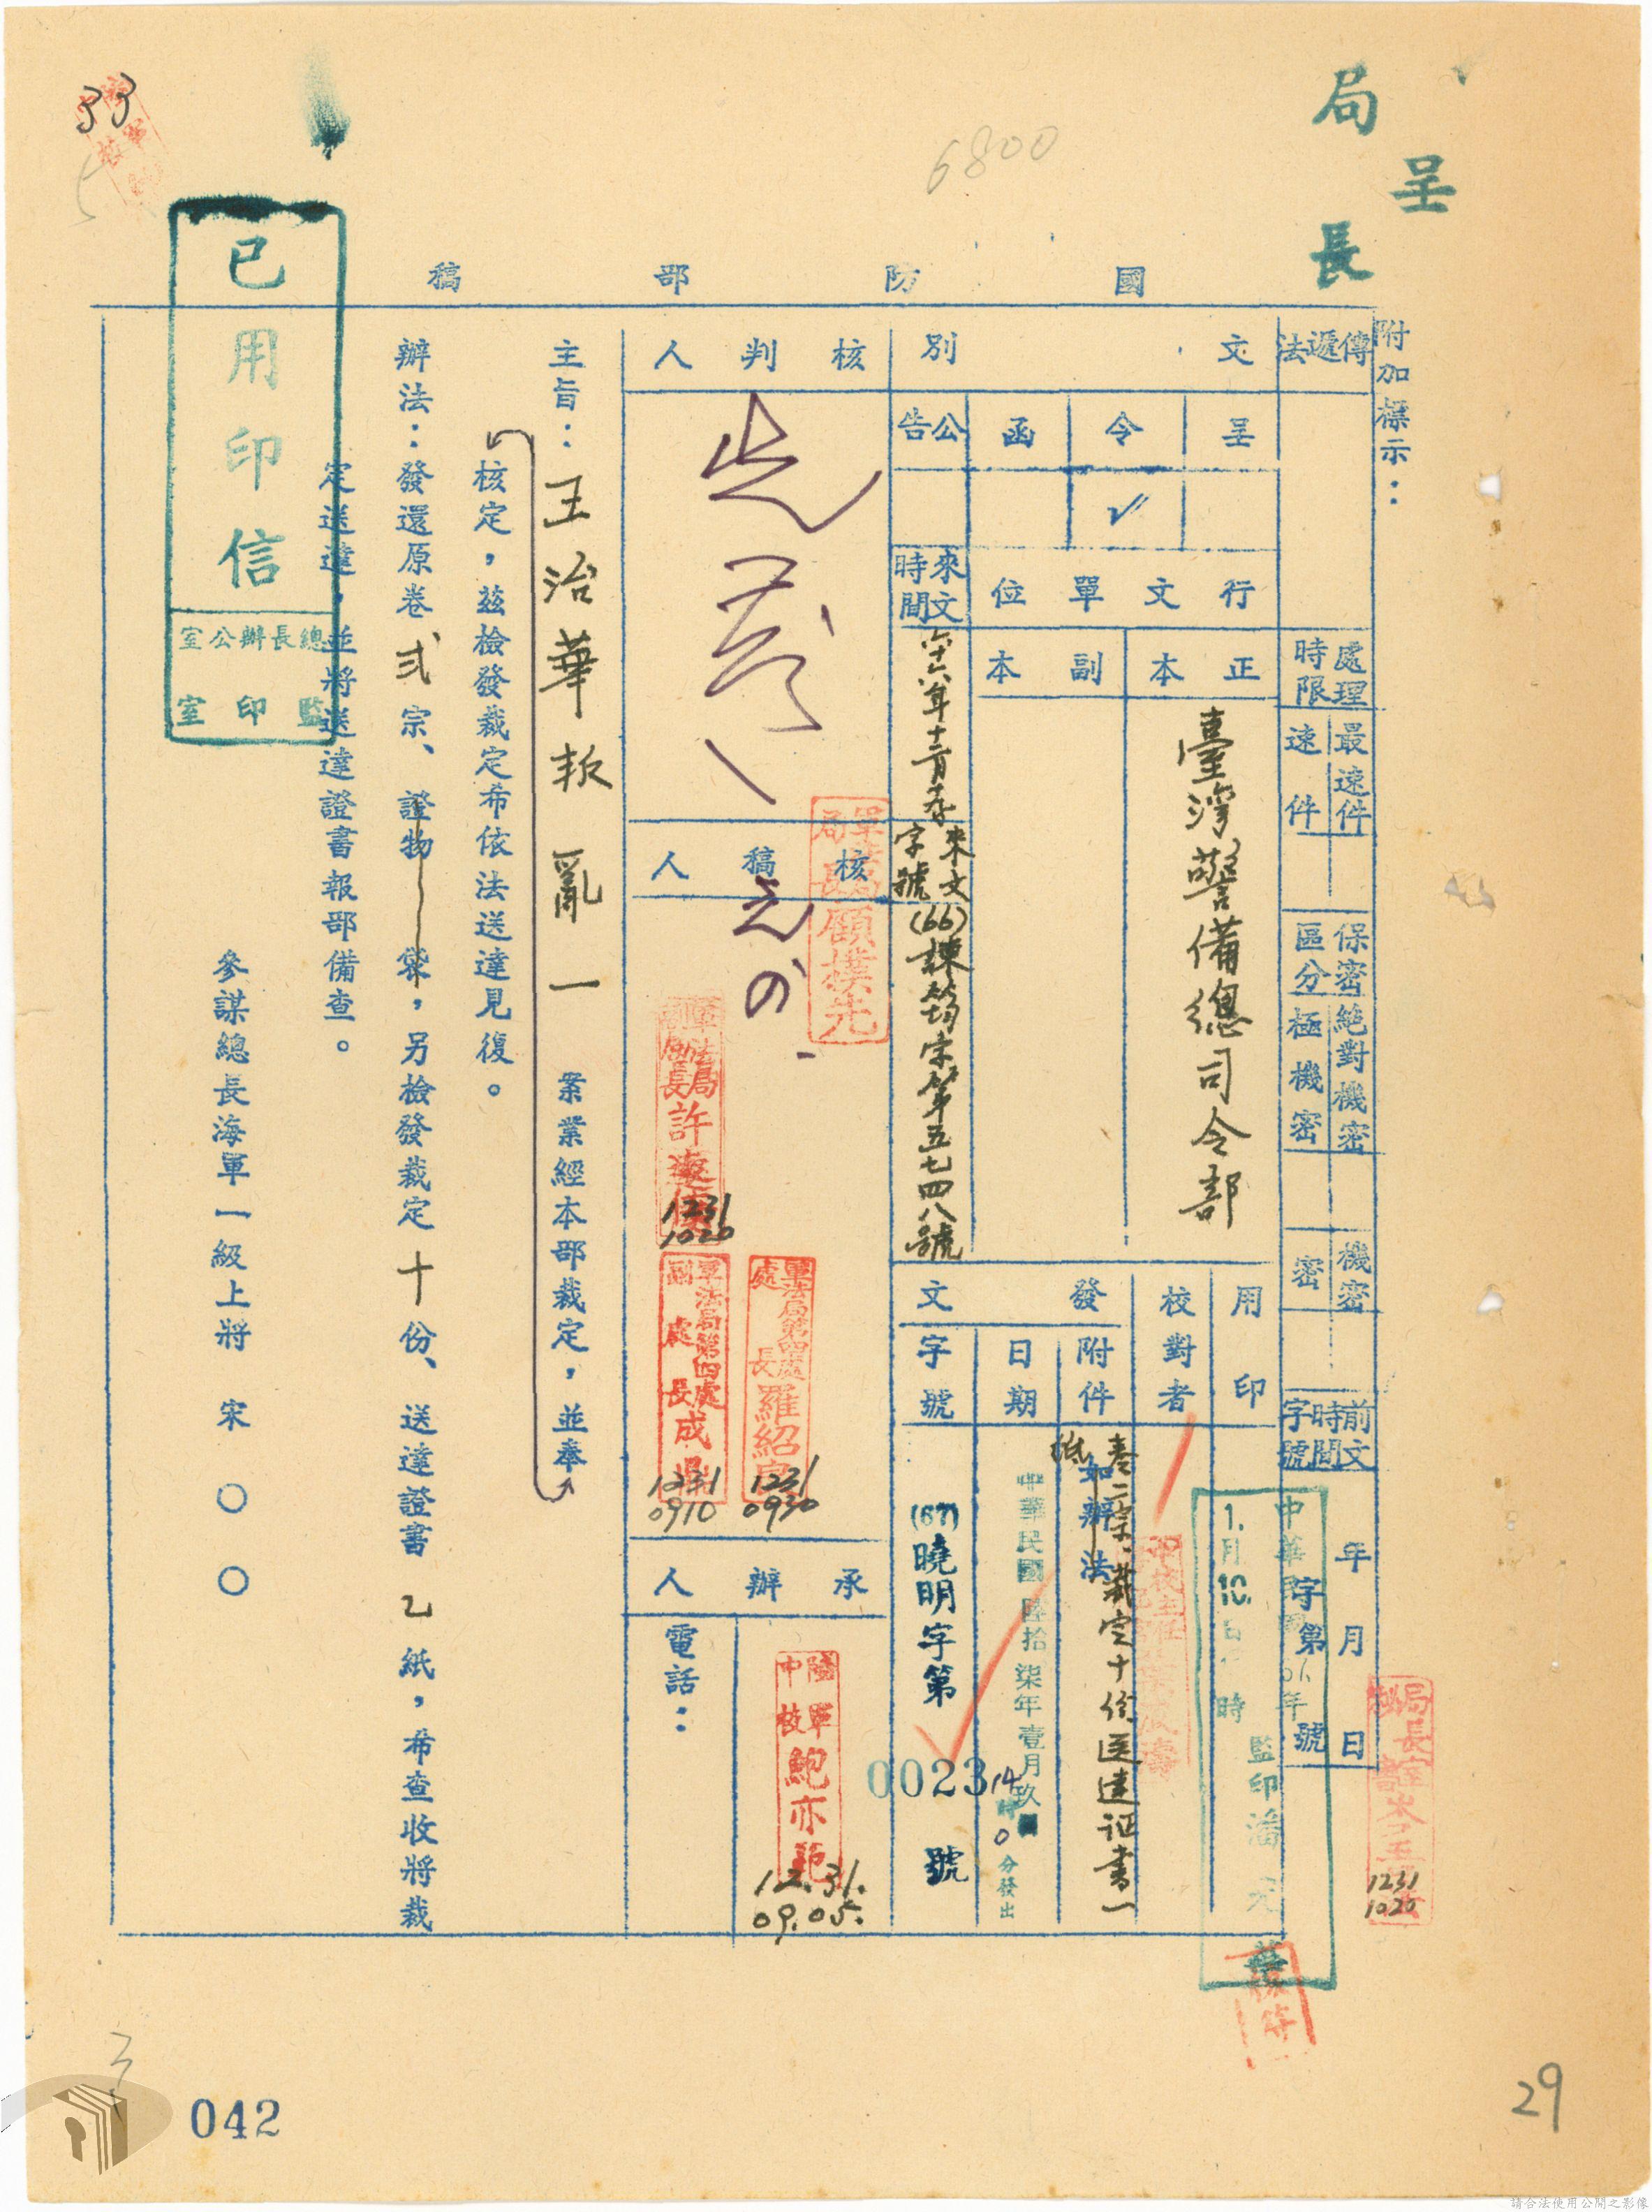 局長
呈
33
6800
國防部稿
附加標示：
傳遞法
處理時限
最速件
速件
保密區分
絕對機密
極機密
機密
密
前文時間字號
年月日
字第號
文別
呈
令
✓
函
公告
行文單位
正本
臺灣警備總司令部
副本
來文時間
六十六年十二月
來文字號
(66)諫筠字第五七四八號
用印
1.月10.日時
監印潘
校對者
發文
附件
如辦法
卷二宗、裁定十份送達证書一紙
日期
中華民國陸拾柒年壹月玖日14時0分發出
字號
(67)曉明字第0023號
核判人
核稿人
軍法局局長顧樸先
軍法局副局長許
1231
1020
軍法局第四處處長羅紹
1231
0930
軍法局第四處副處長成鼎
1231
0910
承辦人
陸軍中校鮑亦
12.31.
09.05.
電話：
局長室
1231
1020
主旨：王治華叛亂一案業經本部裁定，並奉
核定，茲檢發裁定希依法送達見復。
辦法：發還原卷弍宗、證物袋，另檢發裁定十份、送達證書乙紙，希查收將裁
定送達，並將送達證書報部備查。
參謀總長海軍一級上將宋○○
已用印信
總長辦公室
監印室
042
29
請合法使用公開之影像